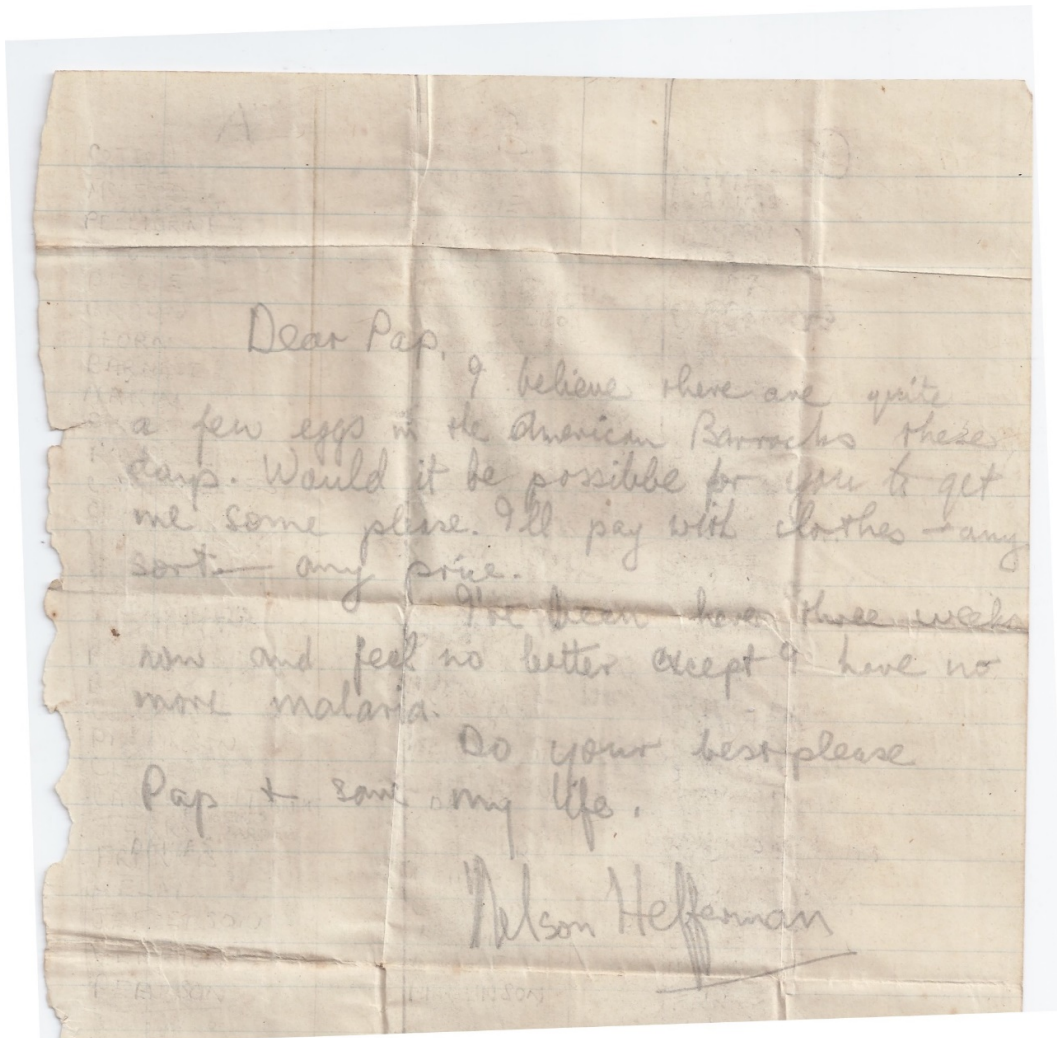 Dear Pap,
I believe there are quite
a few eggs in the American Barracks these
days. Would it be possibbe for you to get
me some please. I'll pay with clothes – any
sort — any price.
I've been here three weeks
now and feel no better except I have no
more malaria.
Do your best please
Pap + save my life.
Nelson Heffernan